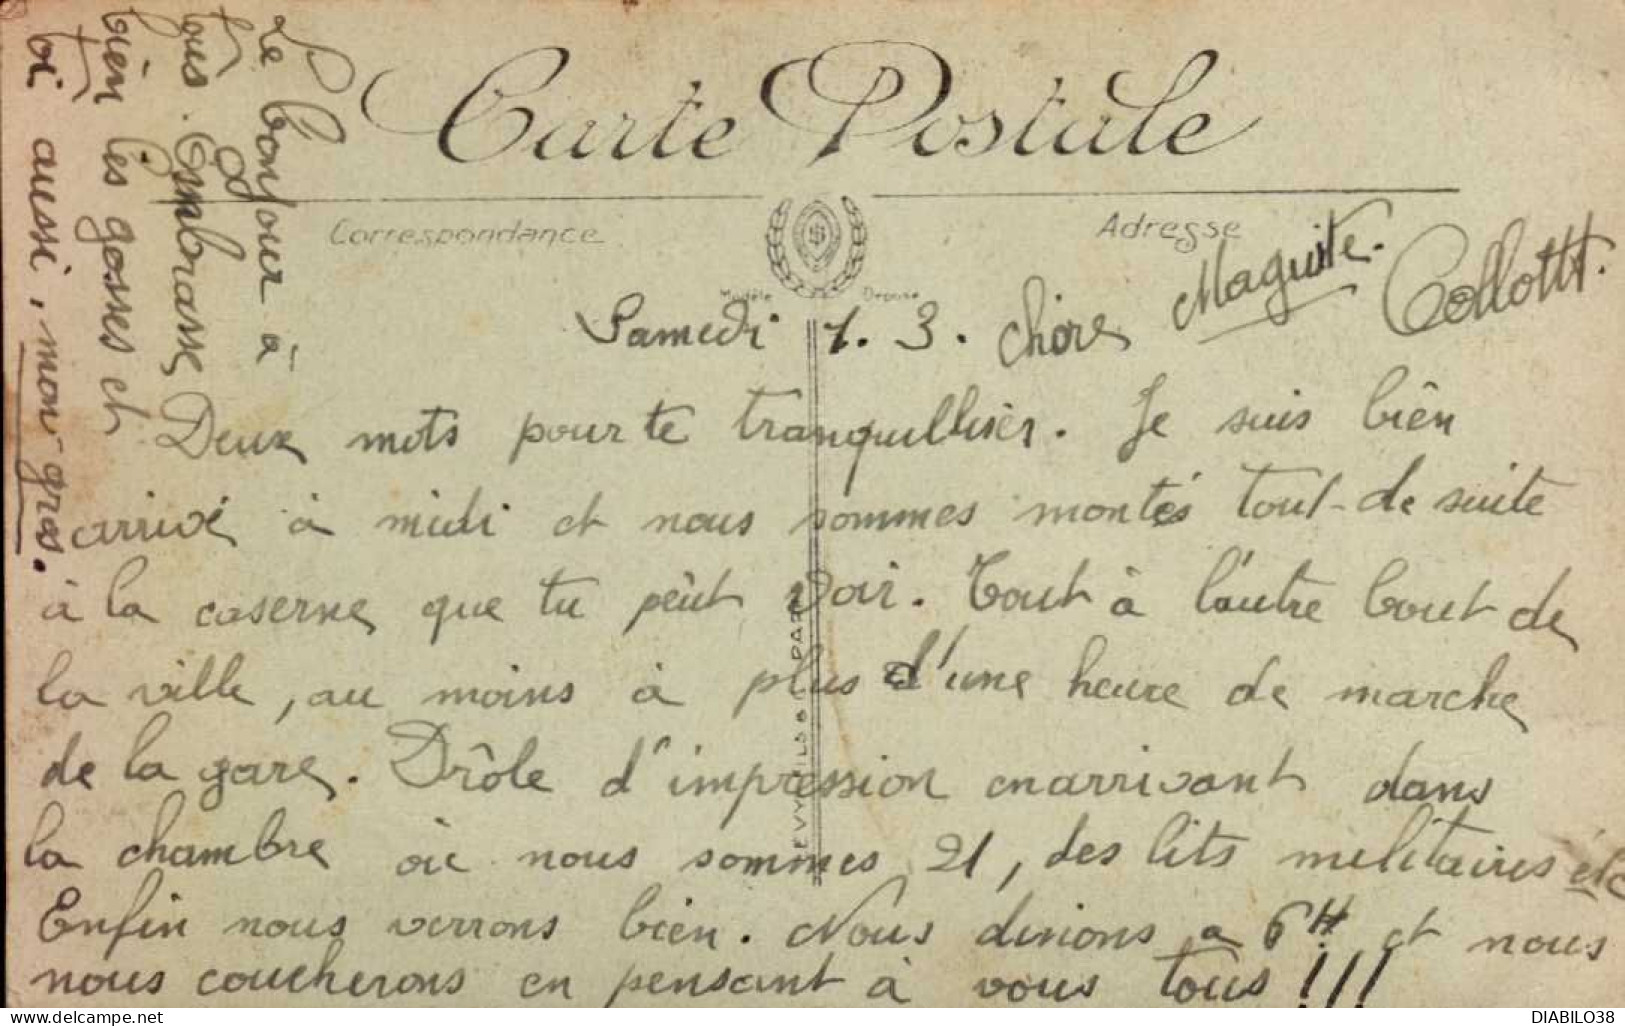 Carte Postale
Correspondance
Adresse
Modèle Déposé
Samedi 1. 3. chère Maguite. Collott.
Deux mots pour te tranquilliser. Je suis bien
arrivé à midi et nous sommes montés tout-de suite
à la caserne que tu peut voir. Tout à l'autre bout de
la ville, au moins à plus d'une heure de marche
de la gare. Drôle d'impression en arrivant dans
la chambre où nous sommes 21, des lits militaires etc
Enfin nous verrons bien. Nous dinons a 6H et nous
nous coucherons en pensant à vous tous !!!
Le bonjour à
tous. Embrasse
bien les gosses et
toi aussi, mon gros.
DIABILO38
www.delcampe.net